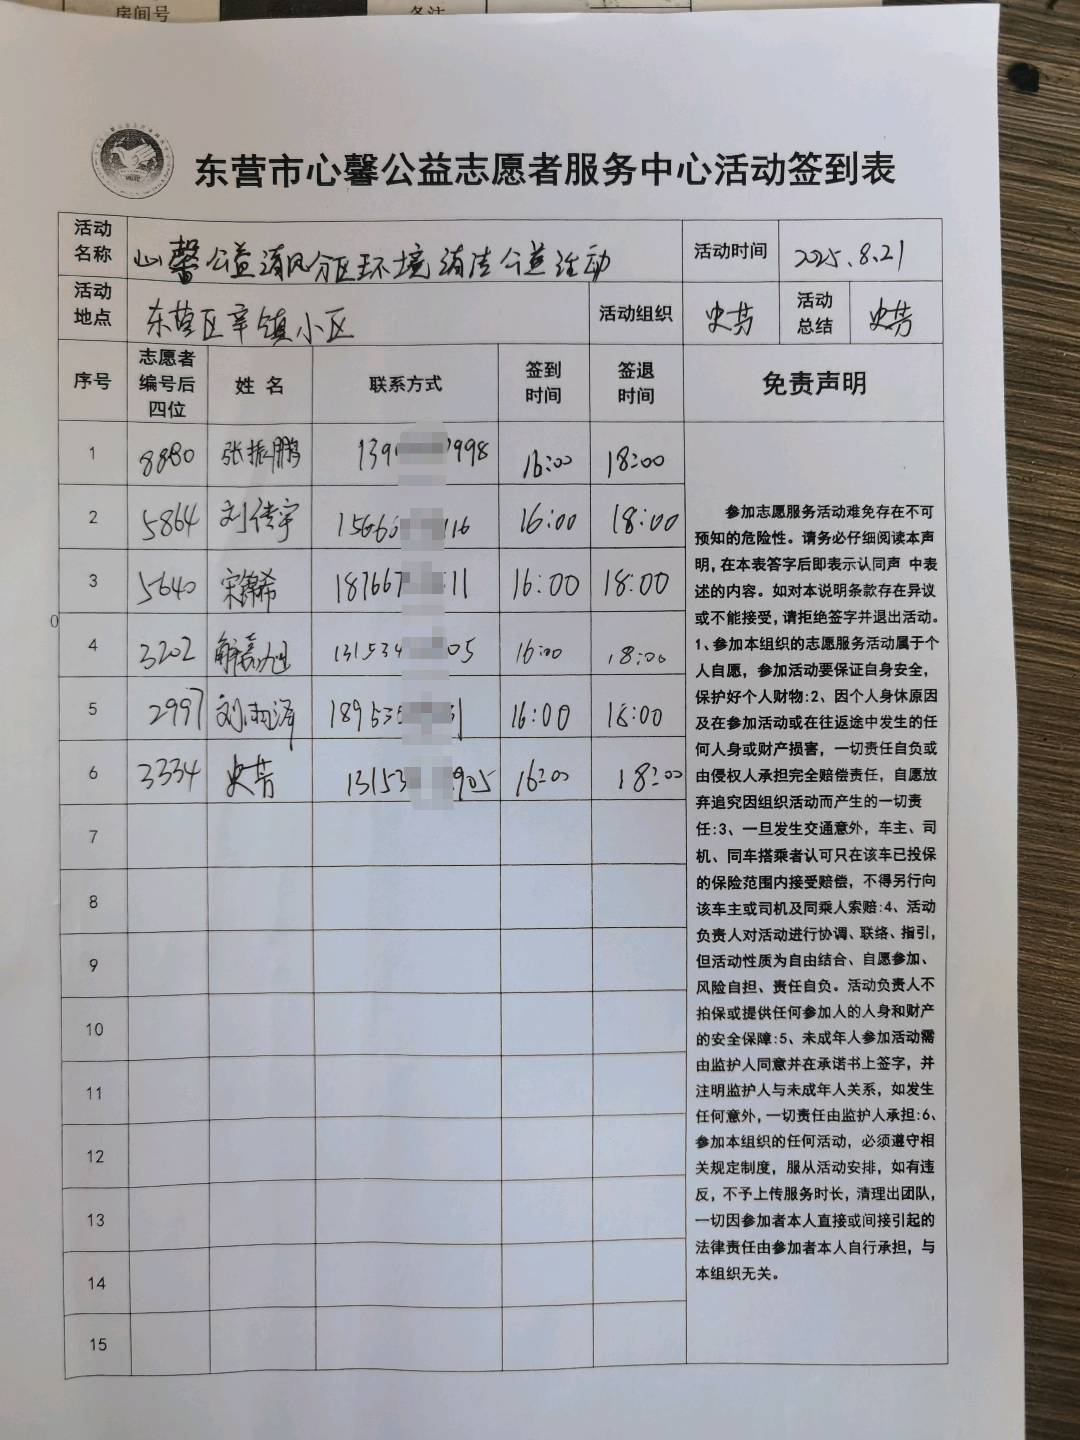 房间号
备注
东营市心馨公益志愿者服务中心活动签到表
活动名称 心馨公益清风分区环境清洁公益活动 活动时间 2025.8.21
活动地点 东营区辛镇小区 活动组织 史芳 活动总结 史芳
序号 志愿者编号后四位 姓名 联系方式 签到时间 签退时间 免责声明
1 8880 张振鹏 139 998 16:00 18:00
2 5864 刘传宇 1566 116 16:00 18:00
3 5640 宋锦希 187667 11 16:00 18:00
4 3202 解嘉旭 131534 05 16:00 18:00
5 2997 刘雨泽 18953 1 16:00 18:00
6 3334 史芳 13153 905 16:00 18:00
7
8
9
10
11
12
13
14
15
参加志愿服务活动难免存在不可
预知的危险性。请务必仔细阅读本声
明,在本表签字后即表示认同声 中表
述的内容。如对本说明条款存在异议
或不能接受,请拒绝签字并退出活动。
1、参加本组织的志愿服务活动属于个
人自愿，参加活动要保证自身安全,
保护好个人财物:2、因个人身休原因
及在参加活动或在往返途中发生的任
何人身或财产损害，一切责任自负或
由侵权人承担完全赔偿责任，自愿放
弃追究因组织活动而产生的一切责
任:3、一旦发生交通意外，车主、司
机、同车搭乘者认可只在该车已投保
的保险范围内接受赔偿，不得另行向
该车主或司机及同乘人索赔:4、活动
负责人对活动进行协调、联络、指引,
但活动性质为自由结合、自愿参加、
风险自担、责任自负。活动负责人不
拍保或提供任何参加人的人身和财产
的安全保障:5、未成年人参加活动需
由监护人同意并在承诺书上签字，并
注明监护人与未成年人关系，如发生
任何意外,一切责任由监护人承担:6、
参加本组织的任何活动，必须遵守相
关规定制度，服从活动安排，如有违
反，不予上传服务时长，清理出团队,
一切因参加者本人直接或间接引起的
法律责任由参加者本人自行承担，与
本组织无关。